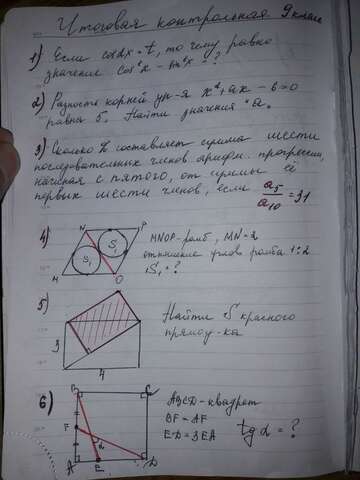 Итоговая контрольная 9 класс
1) Если cos2x = t, то чему равно
значение cos⁴x - sin⁴x = ?
2) Разность корней ур-я x² + ax - 6 = 0
равна 5. Найти значения "a".
3) Сколько % составляет сумма шести
последовательных членов арифм. прогрессии,
начиная с пятого, от суммы её
первых шести членов, если a₅/a₁₀ = 31
4)
N P
S₁ S₁
M O
MNOP - ромб, MN = 2
отношение углов ромба 1:2
S₁ = ?
5)
3
4
Найти S красного
прямоу-ка
6)
B C
F
α
A E D
ABCD - квадрат
BF = AF
ED = 3EA
tg α = ?